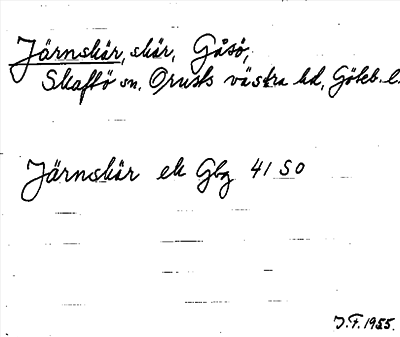 Järnskär, skär, Gåsö,
Skaftö sn, Orusts västra hd, Göteb. l.
Järnskär ek Gbg 41 SO
J.F. 1955.